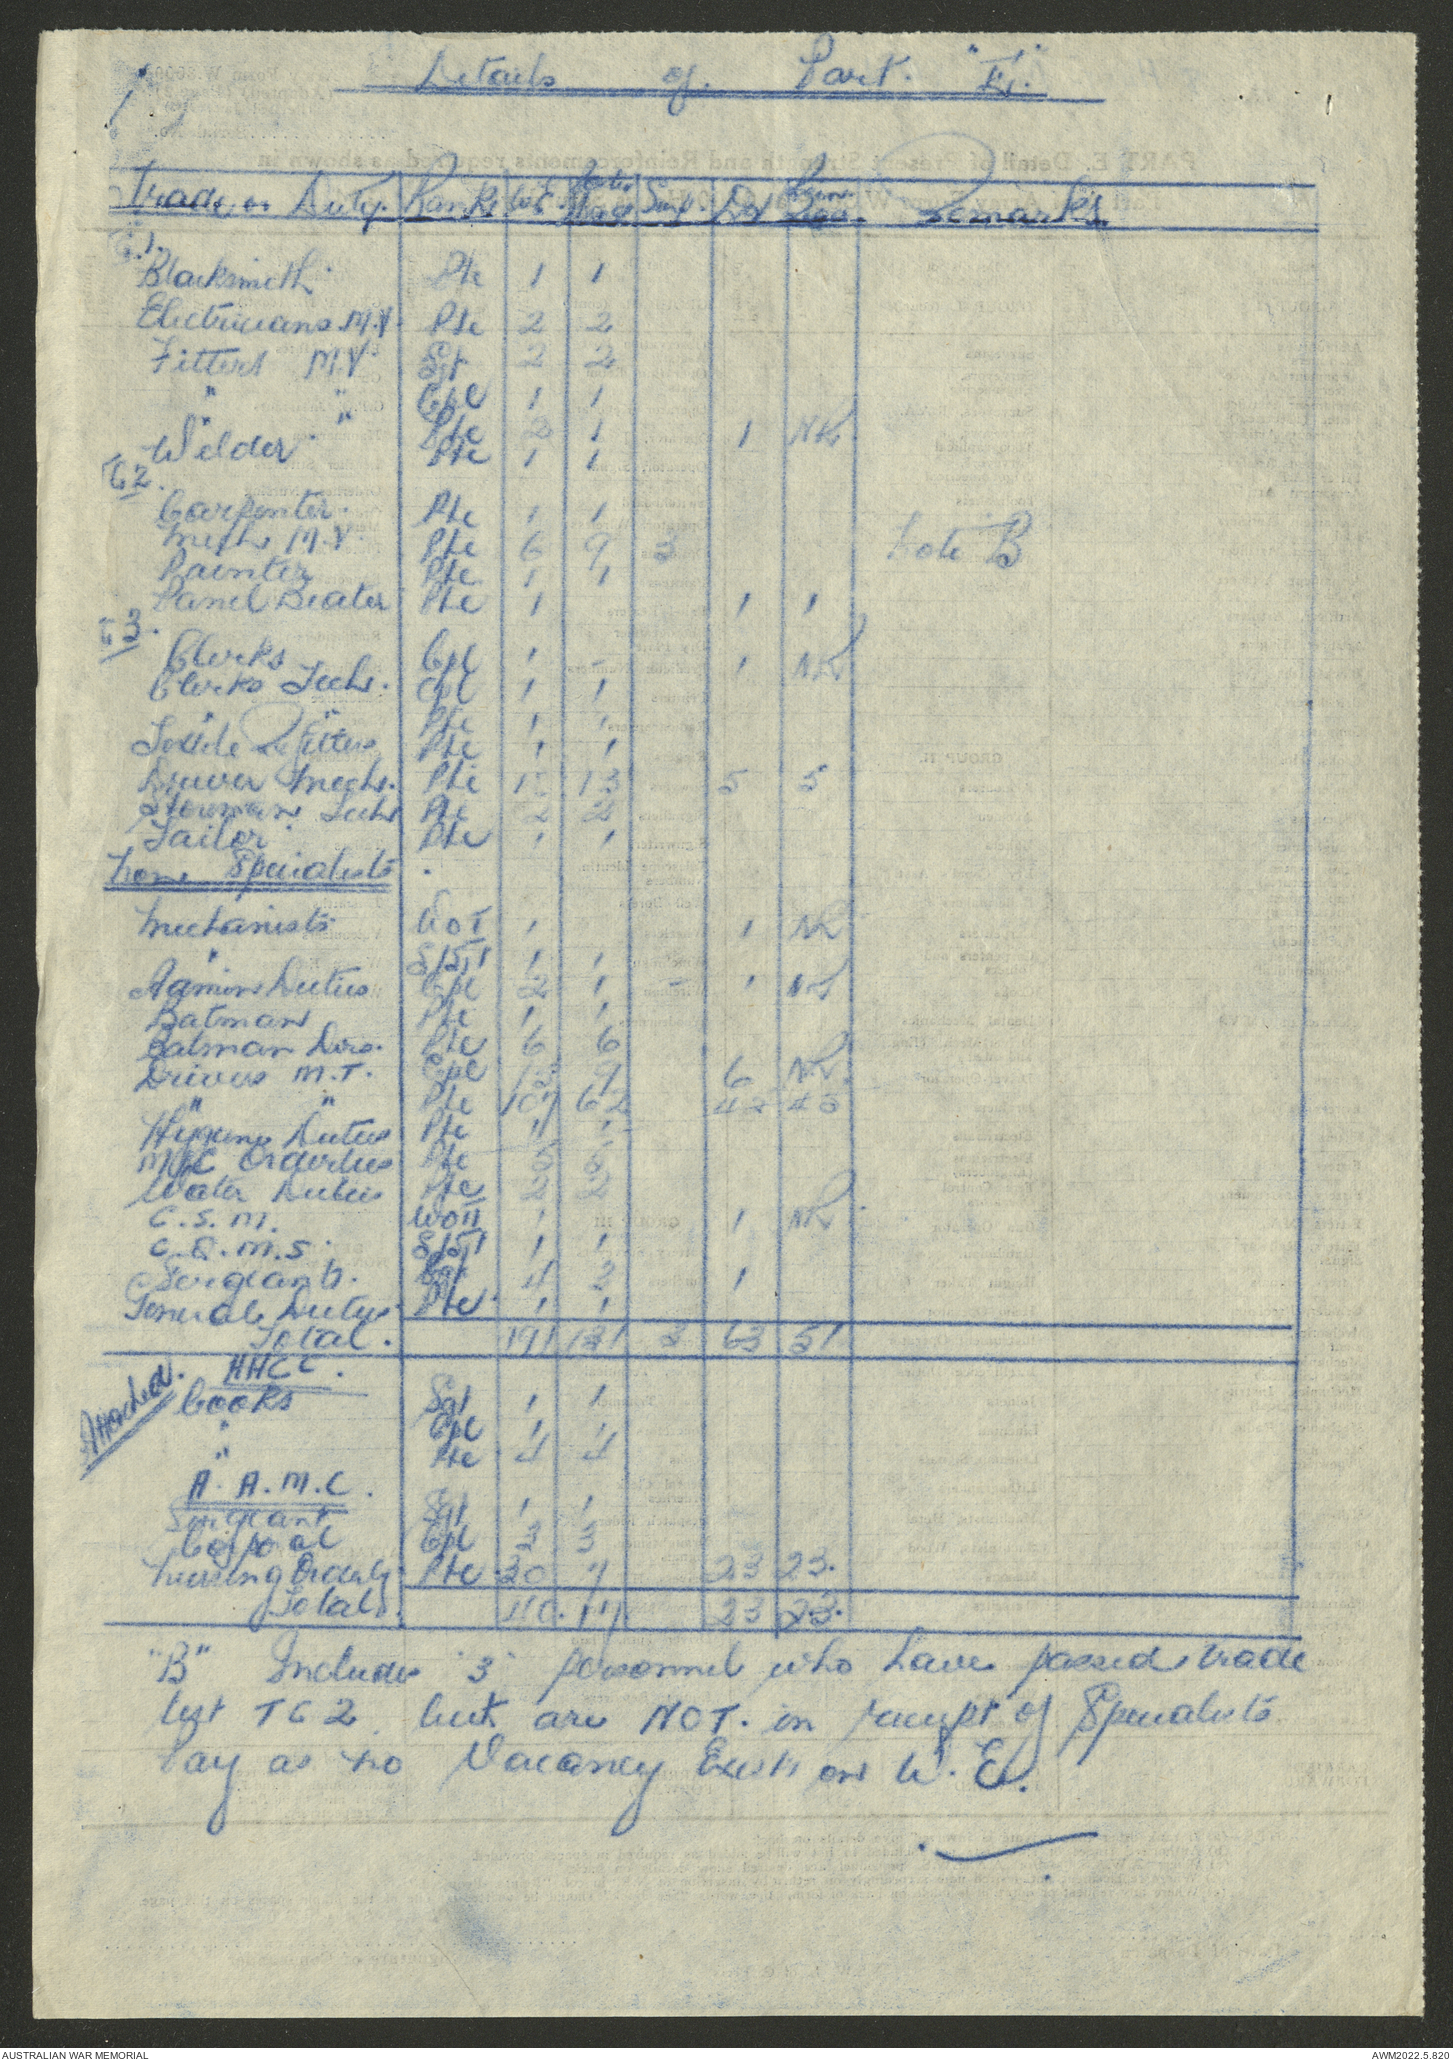 Details of Part. "E".
Trade or Duty. Ranks W.E. Surp Def Remarks
G1.
Blacksmith Pte 1 1
Electricians M.V. Pte 2 2
Fitters M.V Sgt 2 2
" " Cpl 1 1
" " Pte 2 1 1 NR
Welder Pte 1 1
G2.
Carpenter. Pte 1 1
Mech M.V. Pte 6 9 3 Note B
Painter Pte 1 1
Panel Beater Pte 1 1 1
G3.
Clerks Cpl 1 - 1 NR
Clerks Tech. Cpl 1 1
" " Pte 1 1
Textile Refitters Pte 1 1
Driver Mechs. Pte 13 5 5
Storeman Tech Pte 2 2
Tailor Pte 1 1
None Specialists
Mechanists WO1 1 1 NR
" S/Sgt 1 1
Ammn Duties Cpl 2 1 - 1 NR
Batman Pte 1 1
Batman Dvrs. Pte 6 6
Drivers M.T. Cpl 9 6 NR.
" " Pte 107 62
Hygiene Duties Pte 1 1
M/C Orderlies Pte 5 5
Water Duties Pte 2 2
C.S.M. WOII 1 1 NR
C.Q.M.S. S/Sgt 1 1
Sergeants. Sgt 4 2 1
General Duties Pte. 1 1
Total. 191 131 3 63 51
Attached.
AACC.
Cooks Sgt 1 1
" Cpl 1 1
" Pte 4 4
A.A.M.C.
Sergeant Sgt 1 1
Corporal Cpl 3 3
Nursing Orderly Pte 30 7 23 23.
Totals. 40. 17 23 23.
"B" Includes "3" personnel who have passed trade
test TG2 but are NOT. in receipt of Specialists
Pay as no Vacancy Exists on W.E.
AUSTRALIAN WAR MEMORIAL AWM2022.5.820